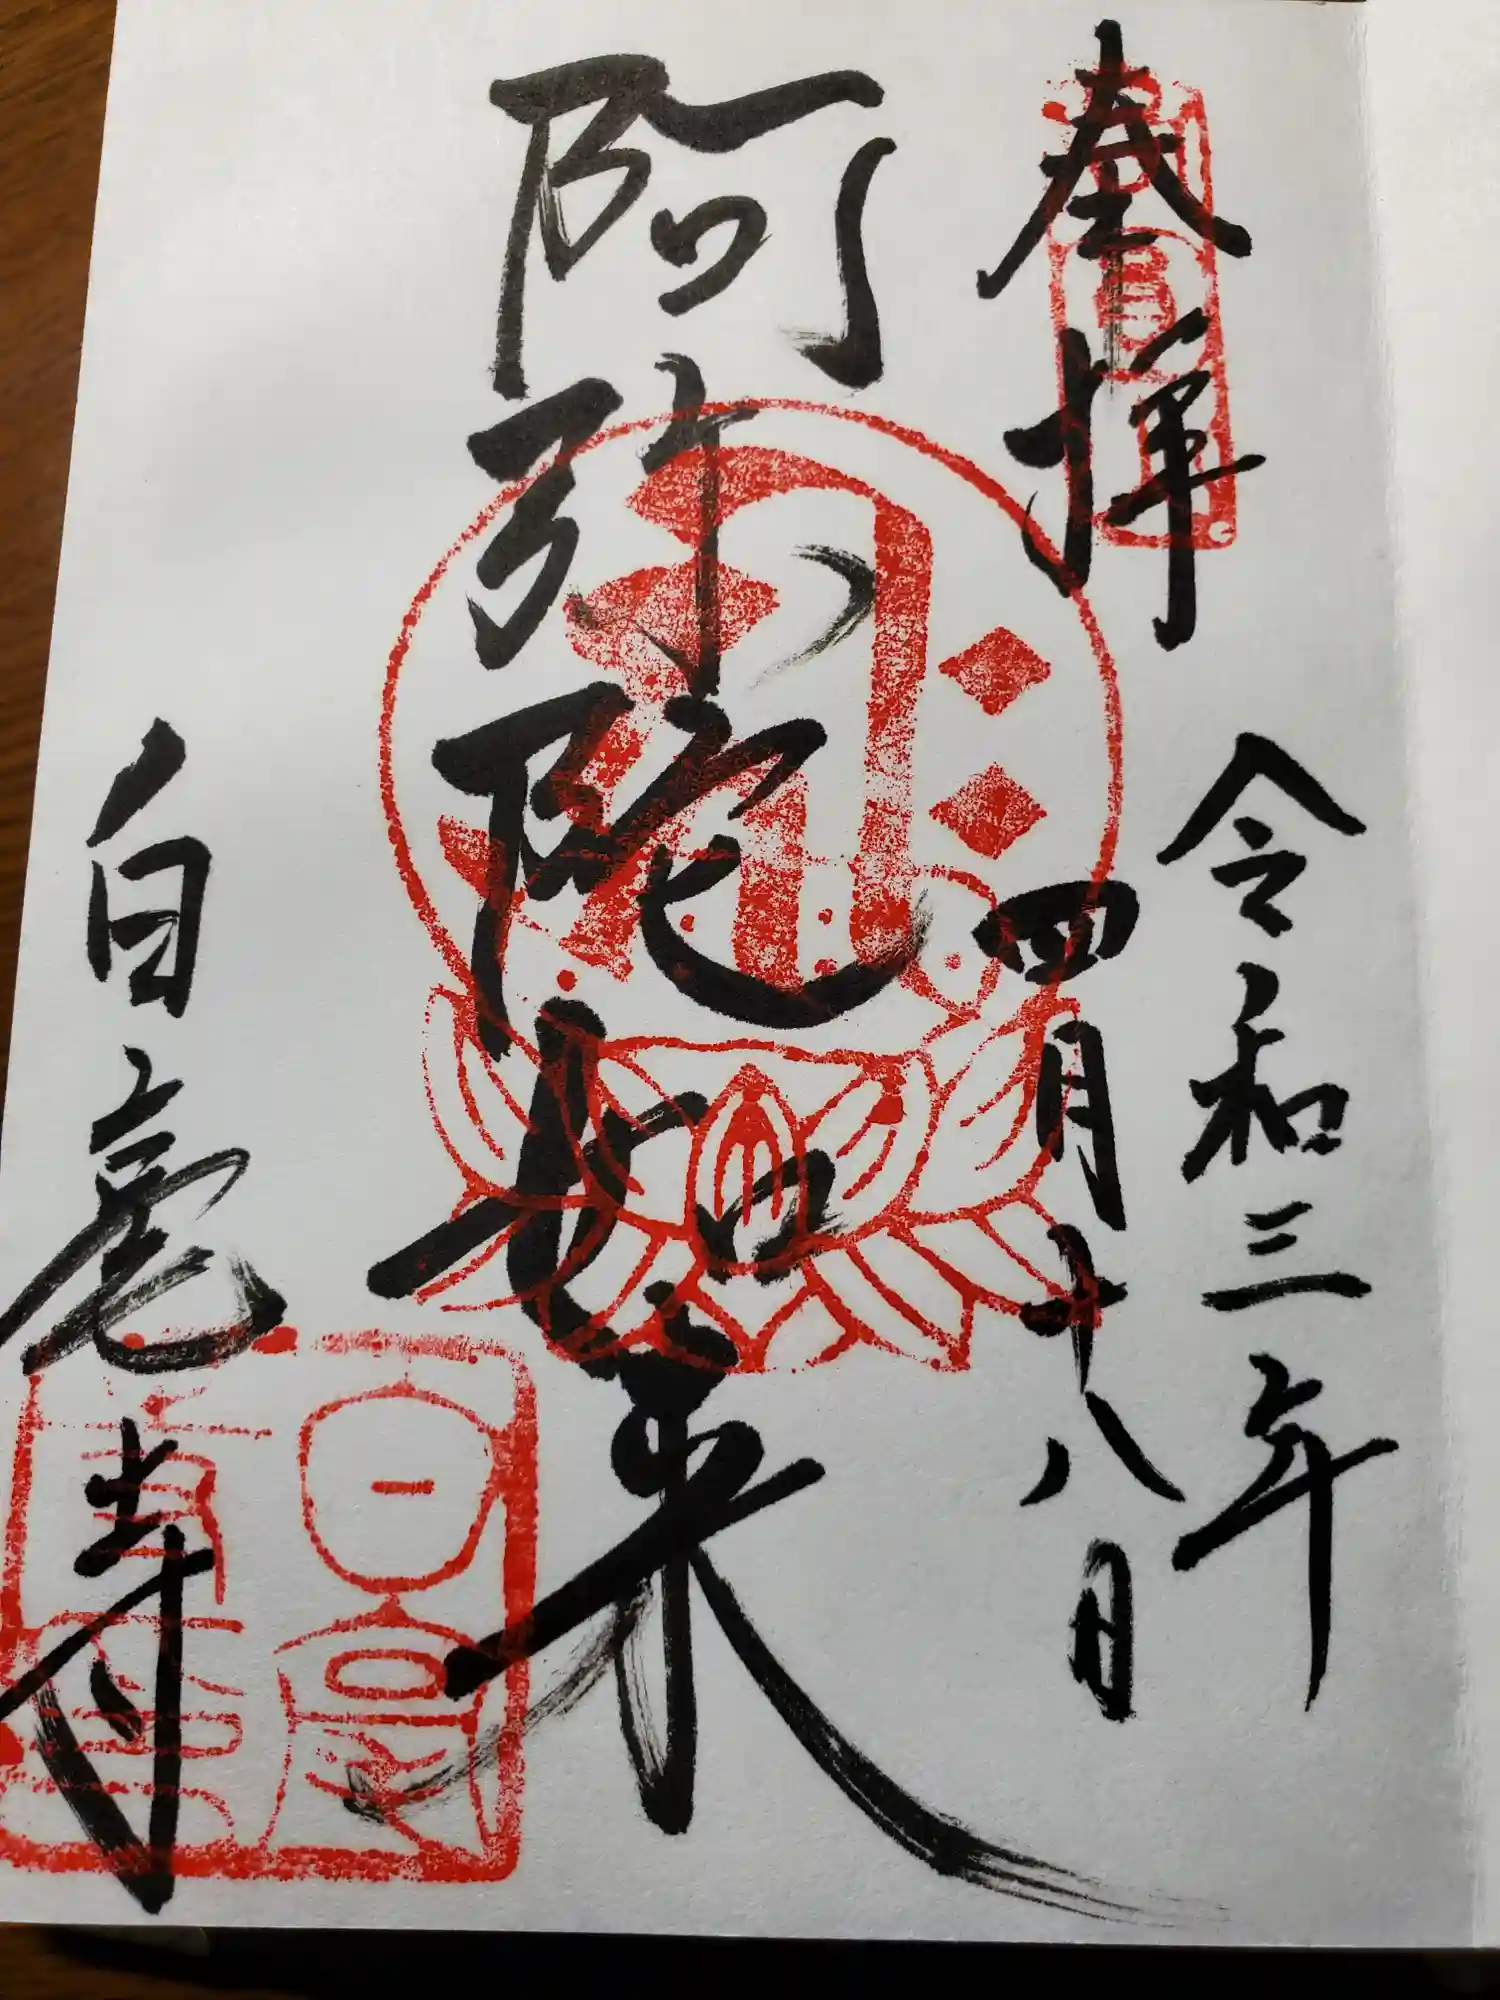 奉拝
令和三年
四月十八日
阿弥陀如来
白毫寺